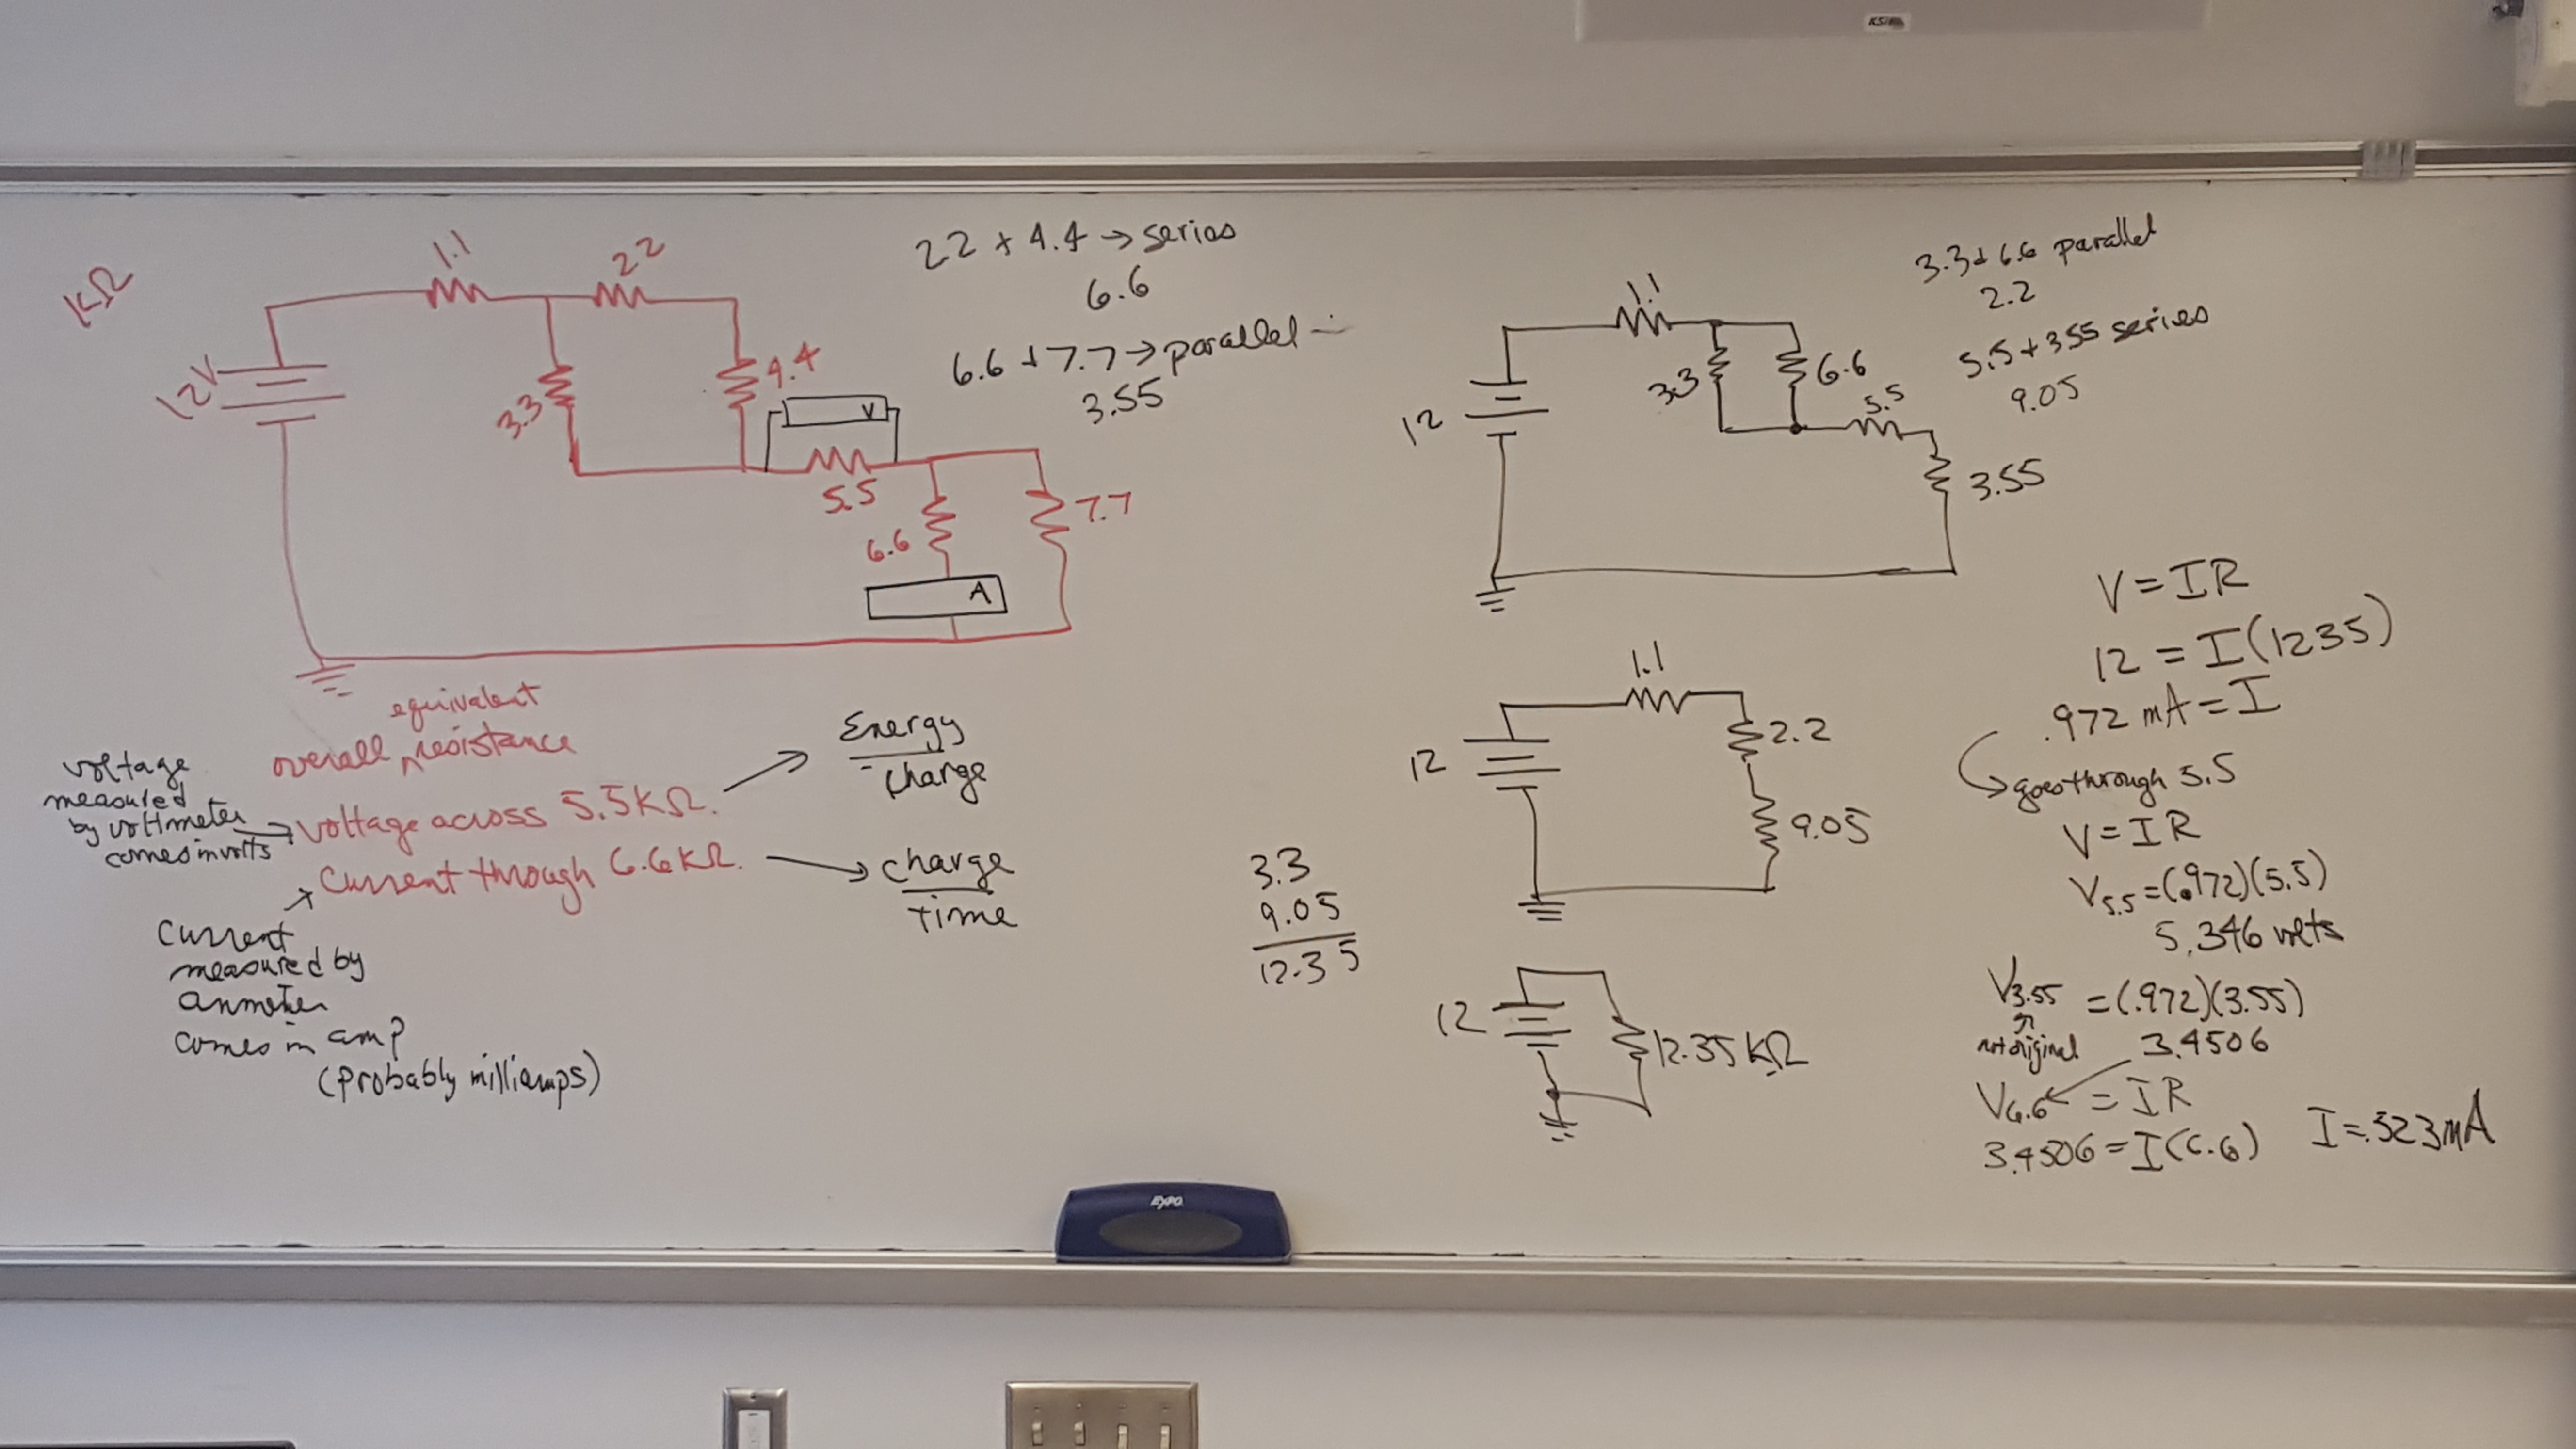 KΩ
1.1
2.2
12V
3.3
4.4
V
5.5
6.6
7.7
A
equivalent
overall ^ resistance
voltage
measured
by voltmeter
comes in volts
voltage across 5.5KΩ.
Energy
charge
Current through 6.6KΩ.
charge
time
Current
measured by
ammeter
comes in amp
(probably milliamps)
2.2 + 4.4 → series
6.6
6.6 + 7.7 → parallel
3.55
1.1
12
3.3
6.6
5.5
3.55
3.3 + 6.6 parallel
2.2
5.5 + 3.55 series
9.05
1.1
12
2.2
9.05
3.3
9.05
12.35
12
12.35 KΩ
V = IR
12 = I(12.35)
.972 mA = I
goes through 5.5
V = IR
V5.5 = (.972)(5.5)
5.346 volts
V3.55 = (.972)(3.55)
not original
3.4506
V6.6 = IR
3.4506 = I(6.6)
I = .523mA
EXPO